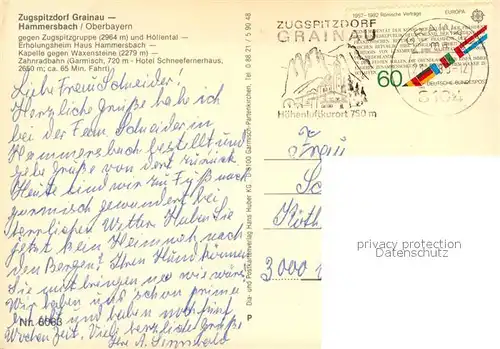 Zugspitzdorf Grainau —
Hammersbach / Oberbayern
gegen Zugspitzgruppe (2964 m) und Höllental —
Erholungsheim Haus Hammersbach —
Kapelle gegen Waxensteine (2279 m) —
Zahnradbahn (Garmisch, 720 m - Hotel Schneefernerhaus,
2650 m; ca. 65 Min. Fahrt)
Liebe Frau Schneider!
Herzliche Grüße habe ich
bei der Fam. Schneider in
Hammersbach bestellt und
gebe Grüße von dort zurück
Heute sind wir zu Fuß nach
Garmisch gewandert bei
herrlichem Wetter. Haben Sie
jetzt kein Heimweh nach
den Bergen? Ihren Hund können
Sie mitbringen
Wir haben uns schon prima
erholt und haben noch fünf
Wochen Zeit. Viele herzliche Grüße
Ihre A.
Nr. 6063
Dia- und Postkartenverlag Hans Huber KG, D-8100 Garmisch-Partenkirchen, Tel. 0 88 21 / 5 90 48
P
ZUGSPITZDORF
GRAINAU
Höhenluftkurort 750 m
1957-1982 Römische Verträge
EUROPA
60
DEUTSCHE BUNDESPOST
Frau
3000
privacy protection
Datenschutz